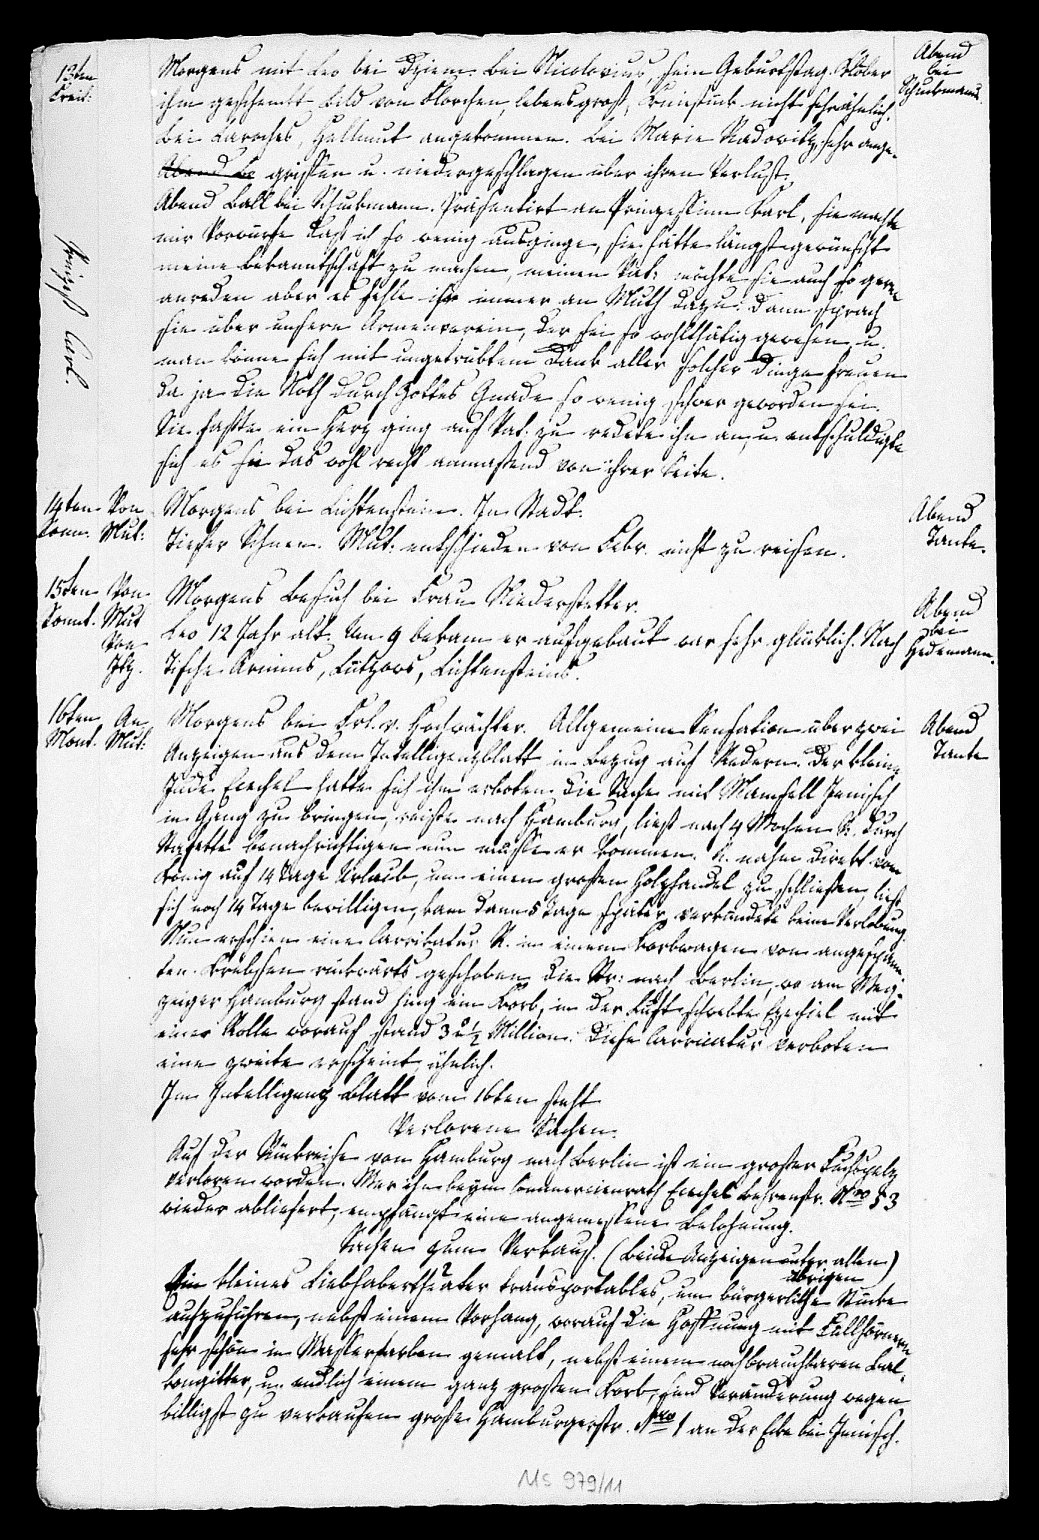 13ten
Freit:
Morgens mit Leo bei Dziem. Bei Nicolovius, sein Geburtstag. Röber
ihm geschenkt Bild von Klärchen, lebensgroß, Kniestück nicht sehr ähnlich.
Bei Laroches, Hellmut angekommen. Bei Marie Radowitz, sehr ange-
Abend Ba griffen u. niedergeschlagen über ihren Verlust.
Abend Ball bei Schuckmann. Präsentirt an Prinzessinn Karl, sie machte
mir Vorwürfe daß ich so wenig ausginge, sie hätte längst gewünscht
meine Bekanntschaft zu machen, meinen Vat: möchte sie auch so gern
anreden aber es fehle ihr immer an Muth dazu. Dann sprach
sie über unsern Armenverein, der sei so wohlthätig gewesen u.
man könne sich mit ungetrübtem Dank aller solcher Dinge freuen
da ja die Noth durch Gottes Gnade so wenig schwer geworden sei.
Sie faßte ein Herz ging auf Vat: zu redete ihn an, u. entschuldigte
sich es sei das wohl recht anmaßend von ihrer Seite.
Abend
bei
Schuckmann.
Prinzeß Carl.
14ten Von
Sonn. Mut:
Morgens bei Lichtenstein. In Stadt.
Tiefer Schnee. Mut. entschieden von Febr. nicht zu reisen.
Abend
Tante.
15ten Von
Sonnt. Mut
Von
Itz.
Morgens Besuch bei Frau Niederstetter.
Leo 12 Jahr alt. Um 9 bekam er aufgebaut war sehr glücklich. Nach
Tische Arnims, Lützows, Lichtensteins.
Abend
bei
Hedemann.
16ten An
Mont. Mut:
Morgens bei Frl. v. Hochwächter. Allgemeine Sensation über zwei
Anzeigen aus dem Intelligenzblatt in Bezug auf Redern. Der kleine
Jude Ezechel hatte sich ihm erboten die Sache mit Mamsell Jenisch
in Gang zu bringen, reiste nach Hamburg, ließ nach 4 Wochen R. durch
Stafette benachrichtigen nun müsse er kommen. R. nahm direkt vom
König auf 14 Tage Urlaub, um einen großen Holzhandel zu schließen, ließ
sich noch 14 Tage bewilligen, kam dann 5 Tage später, verkündete keine Verlobung.
Nun erschien eine Carrikatur R. in einem Korbwagen von angespann-
ten Krebsen rückwärts geschoben die Str: nach Berlin, wo am Weg-
zeiger Hamburg stand hing ein Korb, in der Luft schwebte Ezechiel mit
einer Rolle worauf stand 3 1/2 Million. Diese Carricatur verboten
eine zweite erscheint, ähnlich.
Im Intelligenz Blatt vom 16ten steht
Verlorene Sachen.
Auf der Rückreise von Hamburg nach Berlin ist ein großer Fuchspelz
verloren worden. Wer ihn beym Commercienrath Ezechel Behrenstr. Nro 53
wieder abliefert, empfängt eine angemessene Belohnung.
Sachen zum Verkauf. (Beide Anzeigen unter allen)
übrigen
Ein kleines Liebhabertheater transportables, um bürgerliche Stücke
aufzuführen, nebst einem Vorhang, worauf die Hoffnung mit Füllhörnern
sehr schön in Wasserfarben gemalt, nebst einem noch brauchbaren Bal-
kongitter, u. endlich einem ganz großen Korb sind Veränderung wegen
billigst zu verkaufen große Hamburgerstr. Nro 1 an der Ecke bei Jenisch.
Abend
Tante
Ms 979/11